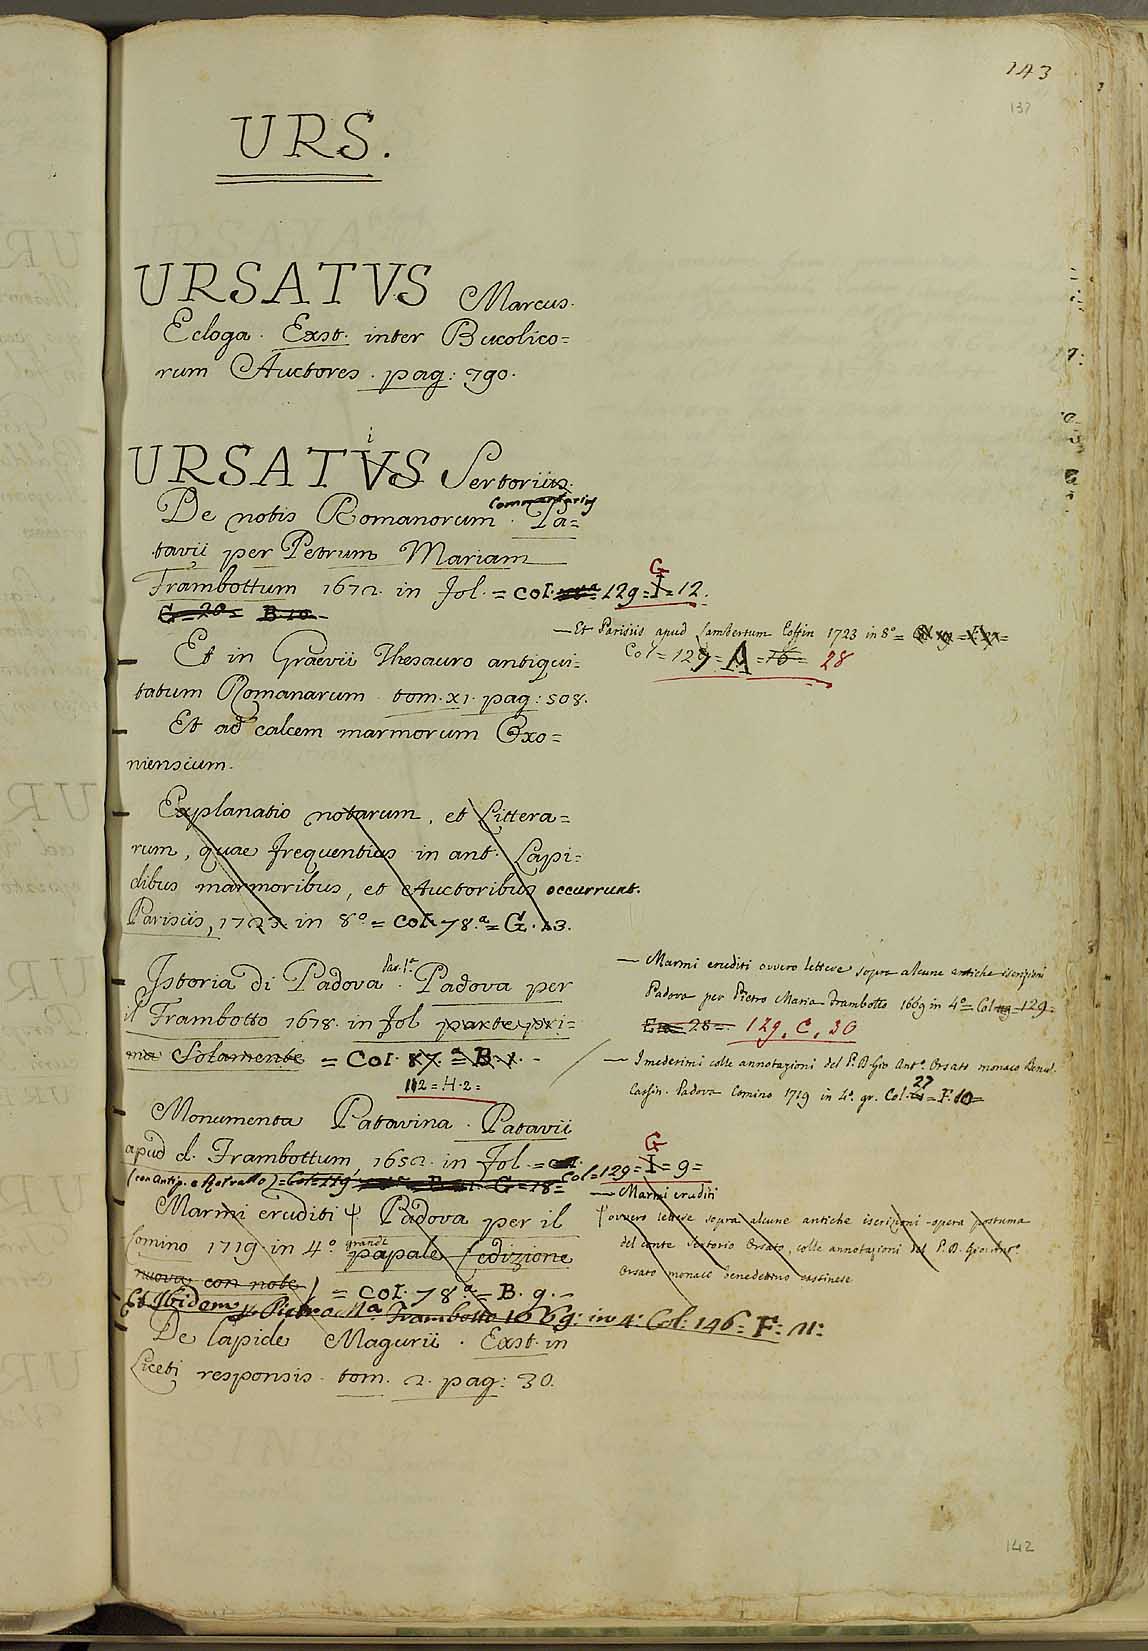 143
137
URS.
URSATVS Marcus.
Ecloga. Exst. inter Bucolico=
rum Auctores. pag: 790.
i
URSATVS Sertorius.
Commentarius
De notis Romanorum. Pa=
tavii per Petrum Mariam
G
Frambottum 1672. in fol. = Col. 129 = I = 12.
G = 20 = B 10 -
— Et Parisiis apud Lambertum Coffin 1723 in 8° =
Col = 129 = A = 16 = 28
Et in Graevii Thesauro antiqui=
tatum Romanarum. tom. XI. pag: 508.
Et ad calcem marmorum Oxo=
niensium.
Explanatio notarum, et Littera=
rum, quae frequentius in ant. Lapi=
dibus marmoribus, et Auctoribus occurrunt.
Parisiis, 1723 in 8° = Col. 78.ª = G. 13.
Par. 1ª
Istoria di Padova. Padova per
il Frambotto 1678. in fol parte pri=
ma Solamente = Col. 87.ª = B. 1. -
112 = H. 2 =
— Marmi eruditi ovvero lettere sopra alcune antiche iscrizioni
Padova per Pietro Maria Frambotto 1669 in 4° = Col 129 =
E = 28 = 129. C. 30
— I medesimi colle annotazioni del P. D. Gio Antº. Orsato monaco Bened.
27
Cassin. Padova Comino 1719 in 4º. gr. Col. = F. 10 =
Monumenta Patavina. Patavii
apud d. Frambottum, 1652. in fol. =
G
(con Antip. e Ritratto) = Col = 119 = G = 18 = Col = 129 = I = 9 =
Marmi eruditi ψ Padova per il
grande
Comino 1719. in 4° papale (edizione
nuova con note) = Col. 78.ª = B. 9. -
Et Ibidem p. Pietro Mª Frambotto 1669: in 4: Col: 146 = F: 11:
— Marmi eruditi
ψ ovvero lettere sopra alcune antiche iscrizioni - opera postuma
del conte Sertorio Orsato, colle annotazioni del P. D. Gio: Antº.
Orsato monaco benedettino cassinese
De lapide Magurii. Exst. in
Liceti responsis. tom. 2. pag: 30.
142